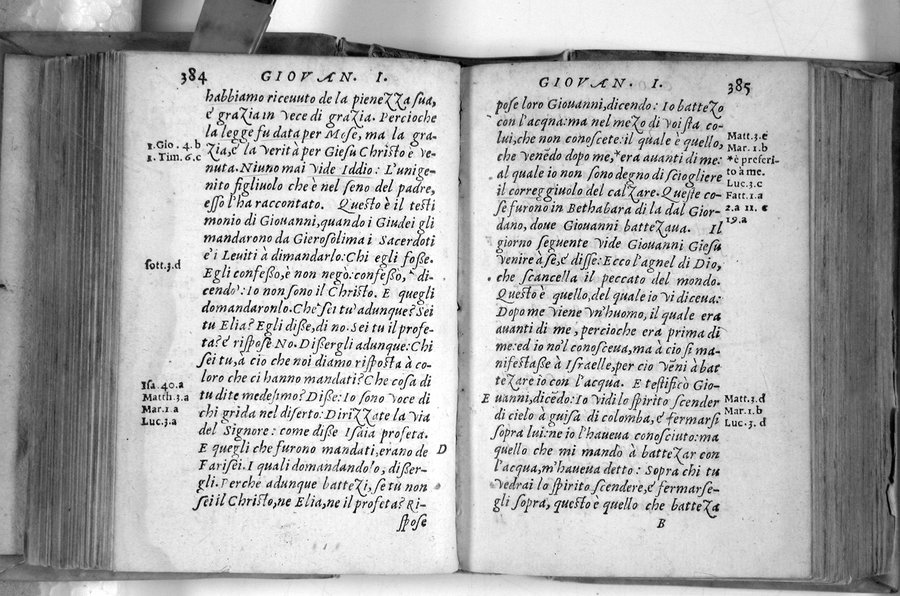 384
GIOVAN. I.
habbiamo riceuuto de la pienezza sua,
e grazia in vece di grazia. Percioche
la legge fu data per Mose, ma la gra-
zia, e la verità per Giesu Christo è ve-
nuta. Niuno mai vide Iddio: L'unige-
nito figliuolo che è nel seno del padre,
esso l'ha raccontato. Questo è il testi
monio di Giouanni, quando i Giudei gli
mandarono da Gierosolima i Sacerdoti
e i Leuiti à dimandarlo: Chi egli fosse.
Egli confessò, è non negò: confessò, di-
cendo: Io non sono il Christo. E quegli
domandaronlo. Che sei tu adunque? Sei
tu Elia? Egli disse, di no. Sei tu il profe-
ta? e rispose No. Dissergli adunque: Chi
sei tu, à cio che noi diamo risposta à co-
loro che ci hanno mandati? Che cosa di
tu di te medesimo? Disse: Io sono voce di
chi grida nel diserto: Dirizzate la via
del Signore: come disse Isaia profeta.
E quegli che furono mandati, erano de
Farisei. I quali domandandolo, disser-
gli. Perche adunque battezi, se tu non
sei il Christo, ne Elia, ne il profeta? Ri-
spose
1. Gio. 4. b
1. Tim. 6. c
sott. 3. d
Isa. 40. a
Matth. 3. a
Mar. 1. a
Luc. 3. a
D
GIOVAN. I.
385
pose loro Giouanni, dicendo: Io battezo
con l'acqna: ma nel mezo di voi sta co-
lui, che non conoscete: il quale è quello,
che venēdo dopo me, *era auanti di me:
al quale io non sono degno di sciogliere
il correggiuolo del calzare. Queste co-
se furono in Bethabara di la dal Gior-
dano, doue Giouanni battezaua. Il
giorno seguente vide Giouanni Giesu
venire à se, e disse: Ecco l'agnel di Dio,
che scancella il peccato del mondo.
Questo è quello, del quale io vi diceua:
Dopo me viene vn'huomo, il quale era
auanti di me, percioche era prima di
me: ed io no'l conosceua, ma à cio si ma-
nifestasse à Israelle, per cio veni à bat
tezare io con l'acqua. E testificò Gio-
uanni, dicēdo: Io vidi lo spirito scender
di cielo à guisa di colomba, e fermarsi
sopra lui: ne io l'haueua conosciuto: ma
quello che mi mandò à battezar con
l'acqua, m'haueua detto: Sopra chi tu
vedrai lo spirito scendere, e fermarse-
gli sopra, questo è quello che batteza
B
Matt. 3. c
Mar. 1. b
*è preferi-
to à me.
Luc. 3. c
Fatt. 1. a
2. a 11. c
19. a
E
Matt. 3. d
Mar. 1. b
Luc. 3. d